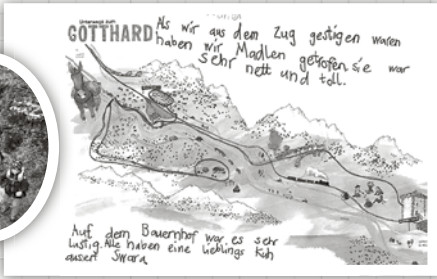 Unterwegs zum
GOTTHARD
Als wir aus dem Zug gestigen waren
haben wir Madlen getrofen sie war
sehr nett und toll.
Auf dem Bauernhof war es sehr
lustig. Alle haben eine lieblings Kuh
auser Swara